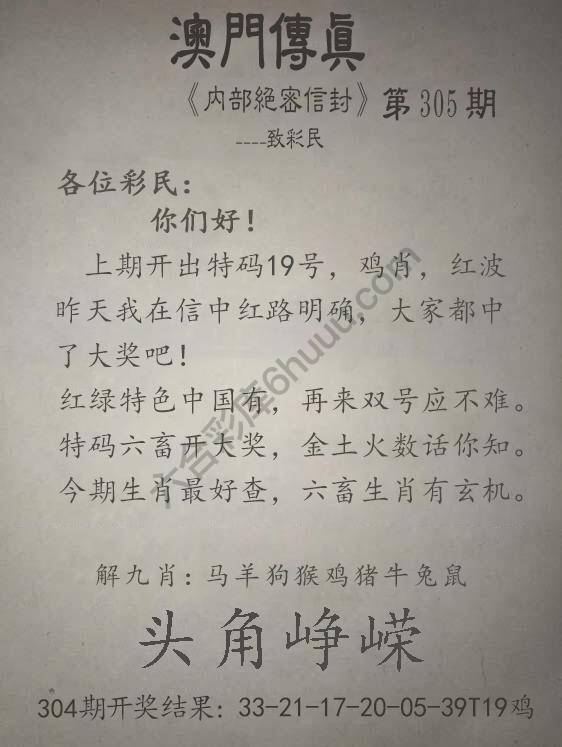 澳門傳真
《内部絕密信封》第305期
----致彩民
各位彩民：
你们好！
上期开出特码19号，鸡肖，红波
昨天我在信中红路明确，大家都中
了大奖吧！
红绿特色中国有，再来双号应不难。
特码六畜开大奖，金土火数话你知。
今期生肖最好查，六畜生肖有玄机。
解九肖：马羊狗猴鸡猪牛兔鼠
头角峥嵘
304期开奖结果：33-21-17-20-05-39T19鸡
六合彩库6huuu.com